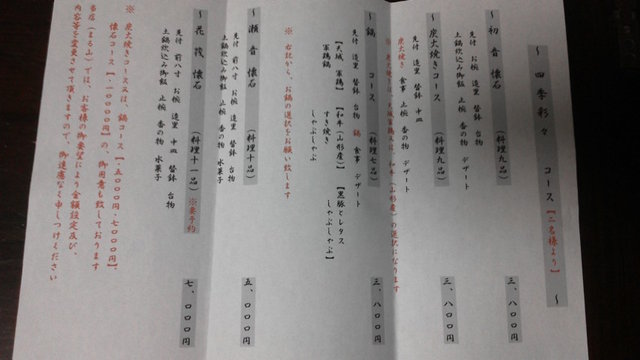 ～ 四季彩々 コース【二名様より】 ～
～ 初音 懐石 （料理九品） 三、八〇〇円
先付 お椀 造里 替鉢 台物
土鍋炊込み御飯 止椀 香の物 デザート
～ 炭火焼きコース （料理九品） 三、八〇〇円
先付 お椀 造里 替鉢 中皿
炭火焼き 食事 止椀 香の物 デザート
～ 鍋 コース （料理七品） 三、八〇〇円
先付 造里 替鉢 台物 鍋 食事 デザート
【天城 軍鶏】 【和牛（山形産）】 【黒豚とレタス
軍鶏鍋 すき焼き しゃぶしゃぶ】
しゃぶしゃぶ
※ 右記から、お鍋の選択をお願い致します
～ 瀬音 懐石 （料理十品） 五、〇〇〇円
先付 前八寸 お椀 造里 替鉢 台物
土鍋炊込み御飯 止椀 香の物 水菓子
～ 花筏 懐石 （料理十一品）※要予約 七、〇〇〇円
先付 前八寸 お椀 造里 中皿 替鉢 台物
土鍋炊込み御飯 止椀 香の物 水菓子
※ 炭火焼きコース又は、鍋コース【五〇〇〇円・七〇〇〇円】、
懐石コース【一〇〇〇〇円】の、御用意も致しております
当店（まる山）では、お客様の御要望により金額設定及び、
内容等を変更させて頂きますので、御遠慮なく申しつけください